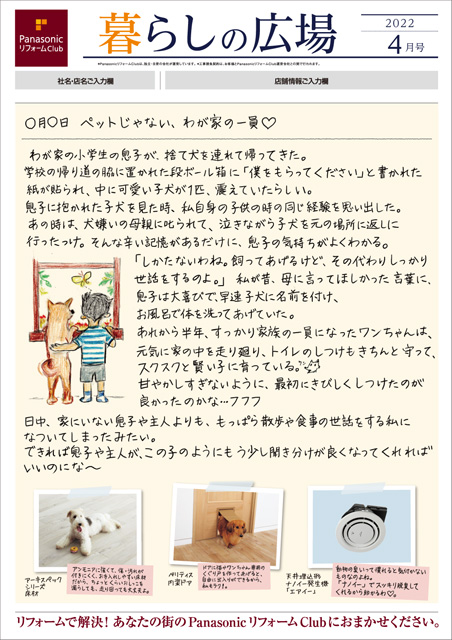 Panasonic
リフォームClub
暮らしの広場
2022
4月号
※PanasonicリフォームClubは、独立・自営の会社が運営しています。※工事請負契約は、お客様とPanasonicリフォームClub運営会社との間で行われます。
社名・店名ご入力欄
店舗情報ご入力欄
〇月〇日 ペットじゃない、わが家の一員♡
わが家の小学生の息子が、捨て犬を連れて帰ってきた。
学校の帰り道の脇に置かれた段ボール箱に「僕をもらってください」と書かれた
紙が貼られ、中に可愛い子犬が1匹、震えていたらしい。
息子に抱かれた子犬を見た時、私自身の子供の時の同じ経験を思い出した。
あの時は、犬嫌いの母親に叱られて、泣きながら子犬を元の場所に返しに
行ったっけ。そんな辛い記憶があるだけに、息子の気持ちがよくわかる。
「しかたないわね。飼ってあげるけど、その代わりしっかり
世話をするのよ。」 私が昔、母に言ってほしかった言葉に、
息子は大喜びで、早速子犬に名前を付け、
お風呂で体を洗ってあげていた。
あれから半年、すっかり家族の一員になったワンちゃんは、
元気に家の中を走り廻り、トイレのしつけもきちんと守って、
スクスクと賢い子に育っている。
甘やかしすぎないように、最初にきびしくしつけたのが
良かったのかな…フフフ
日中、家にいない息子や主人よりも、もっぱら散歩や食事の世話をする私に
なついてしまったみたい。
できれば息子や主人が、この子のようにもう少し聞き分けが良くなってくれれば
いいのにな〜
アーキスペック
シリーズ
床材
アンモニアに強くて、傷・汚れが
付きにくく、お手入れしやすい床材
だから、ちょっとくらいおしっこを
漏らしても、走り回っても大丈夫よ。
ベリティス
内装ドア
ドアに猫やワンちゃん専用の
くぐり戸を作ってあげると、
自由に出入りができるから、
私もラク♪。
天井埋込形
ナノイー発生機
「エアイー」
動物の臭いって慣れると気付かない
ものなのよね。
「ナノイー」でスッキリ脱臭して
くれるから助かるわ♡。
リフォームで解決! あなたの街のPanasonicリフォームClubにおまかせください。